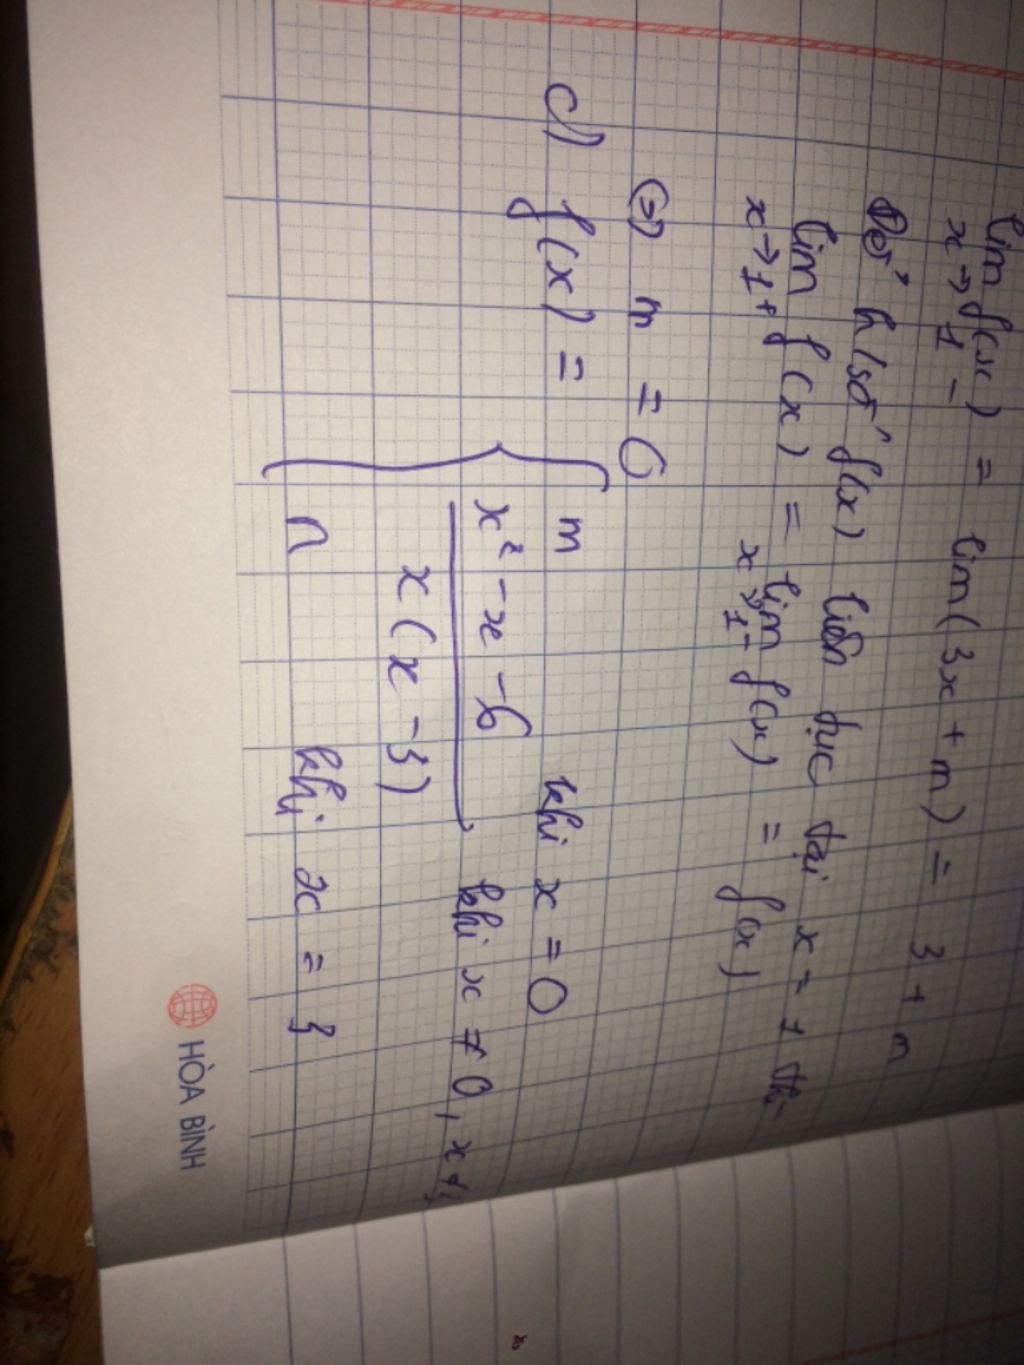 lim f(x) = lim (3x + m) = 3 + m
x→1⁻
Để h/số f(x) liên tục tại x = 1 thì
lim f(x) = lim f(x) = f(x)
x→1⁺ x→1⁻
⇔ m = 0
d) f(x) = { m khi x = 0
x² - x - 6 khi x ≠ 0, x ≠
x(x - 3)
n khi x = 3
HÒA BÌNH